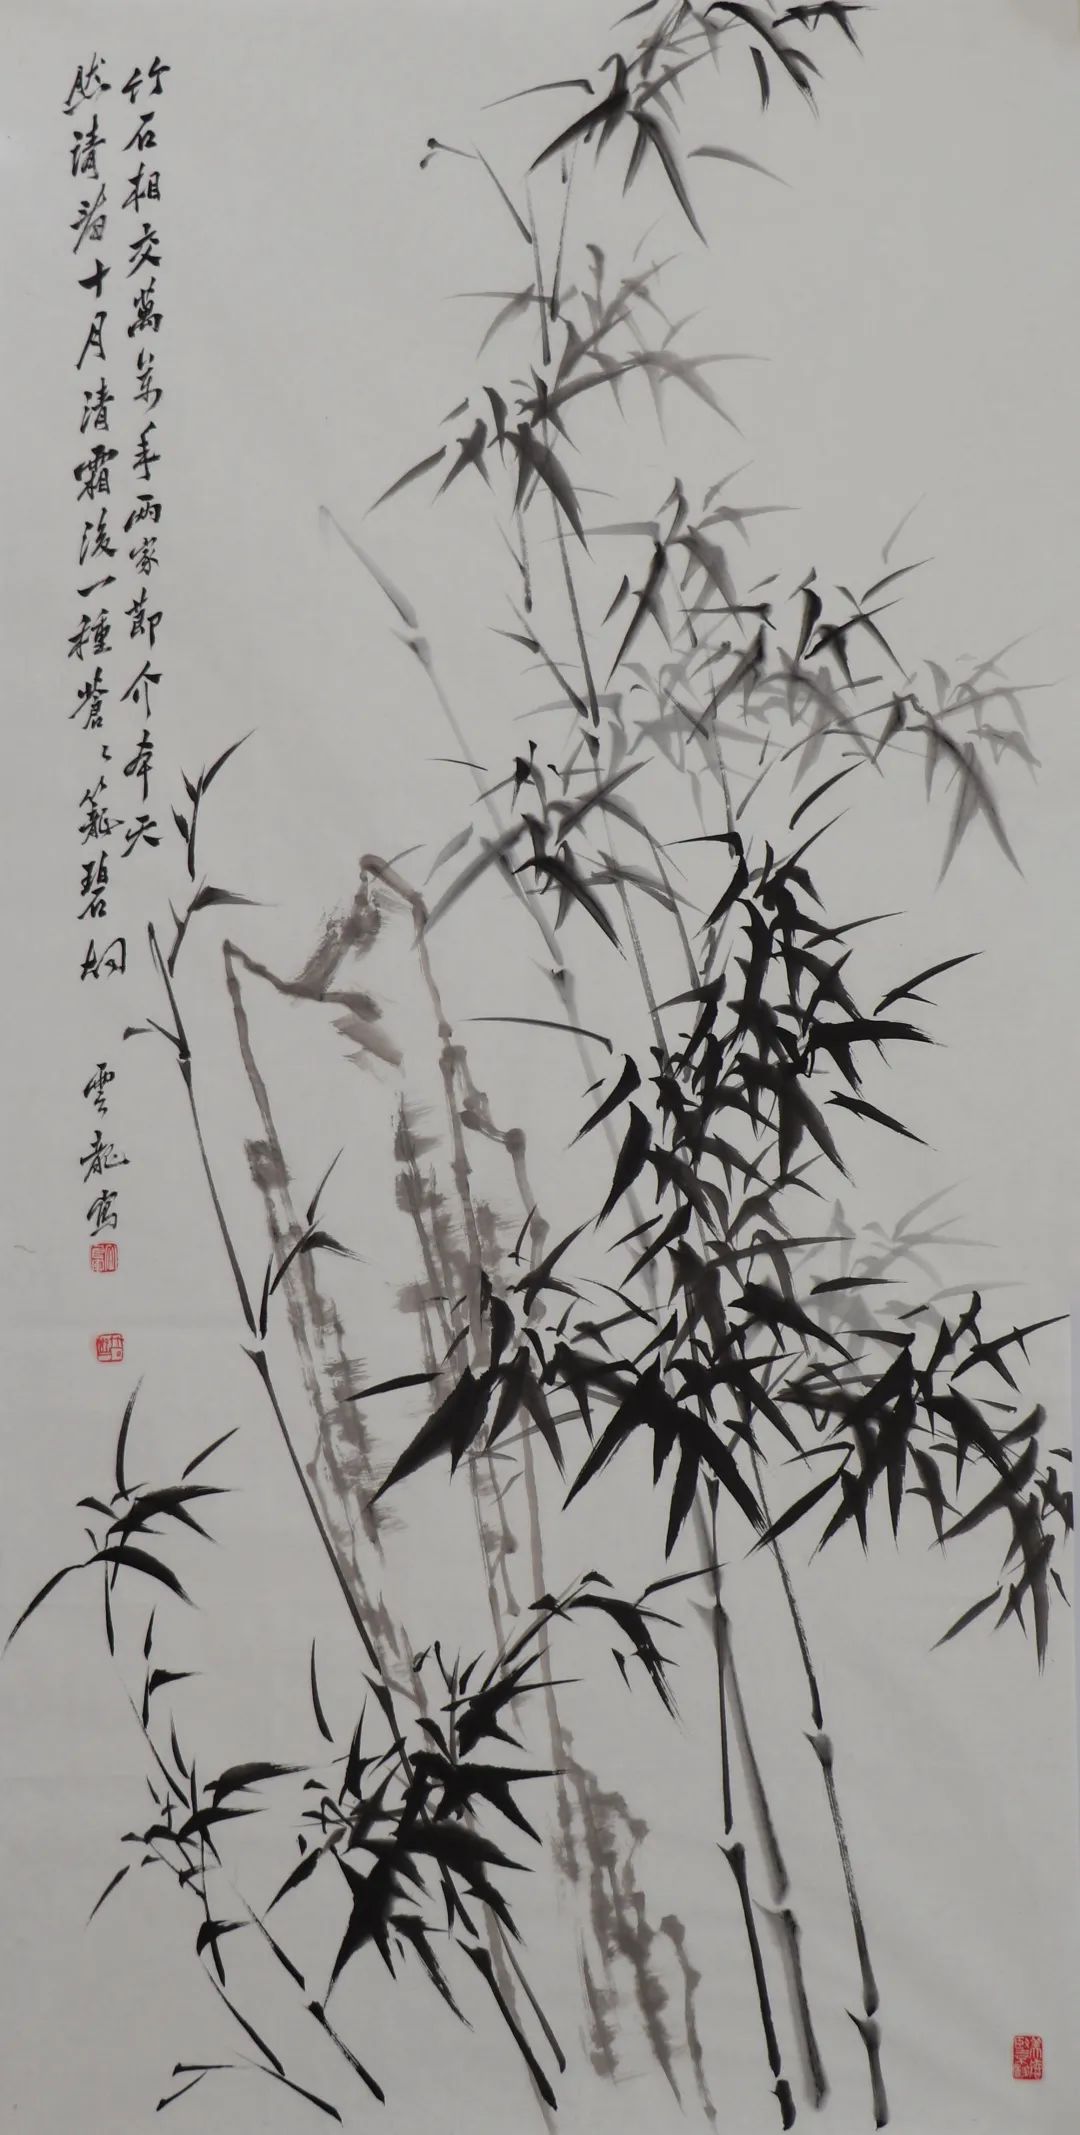 竹石相交萬萬年兩家節介本天
然請看十月清霜後一種蒼〻籠碧烟
雲龍寫